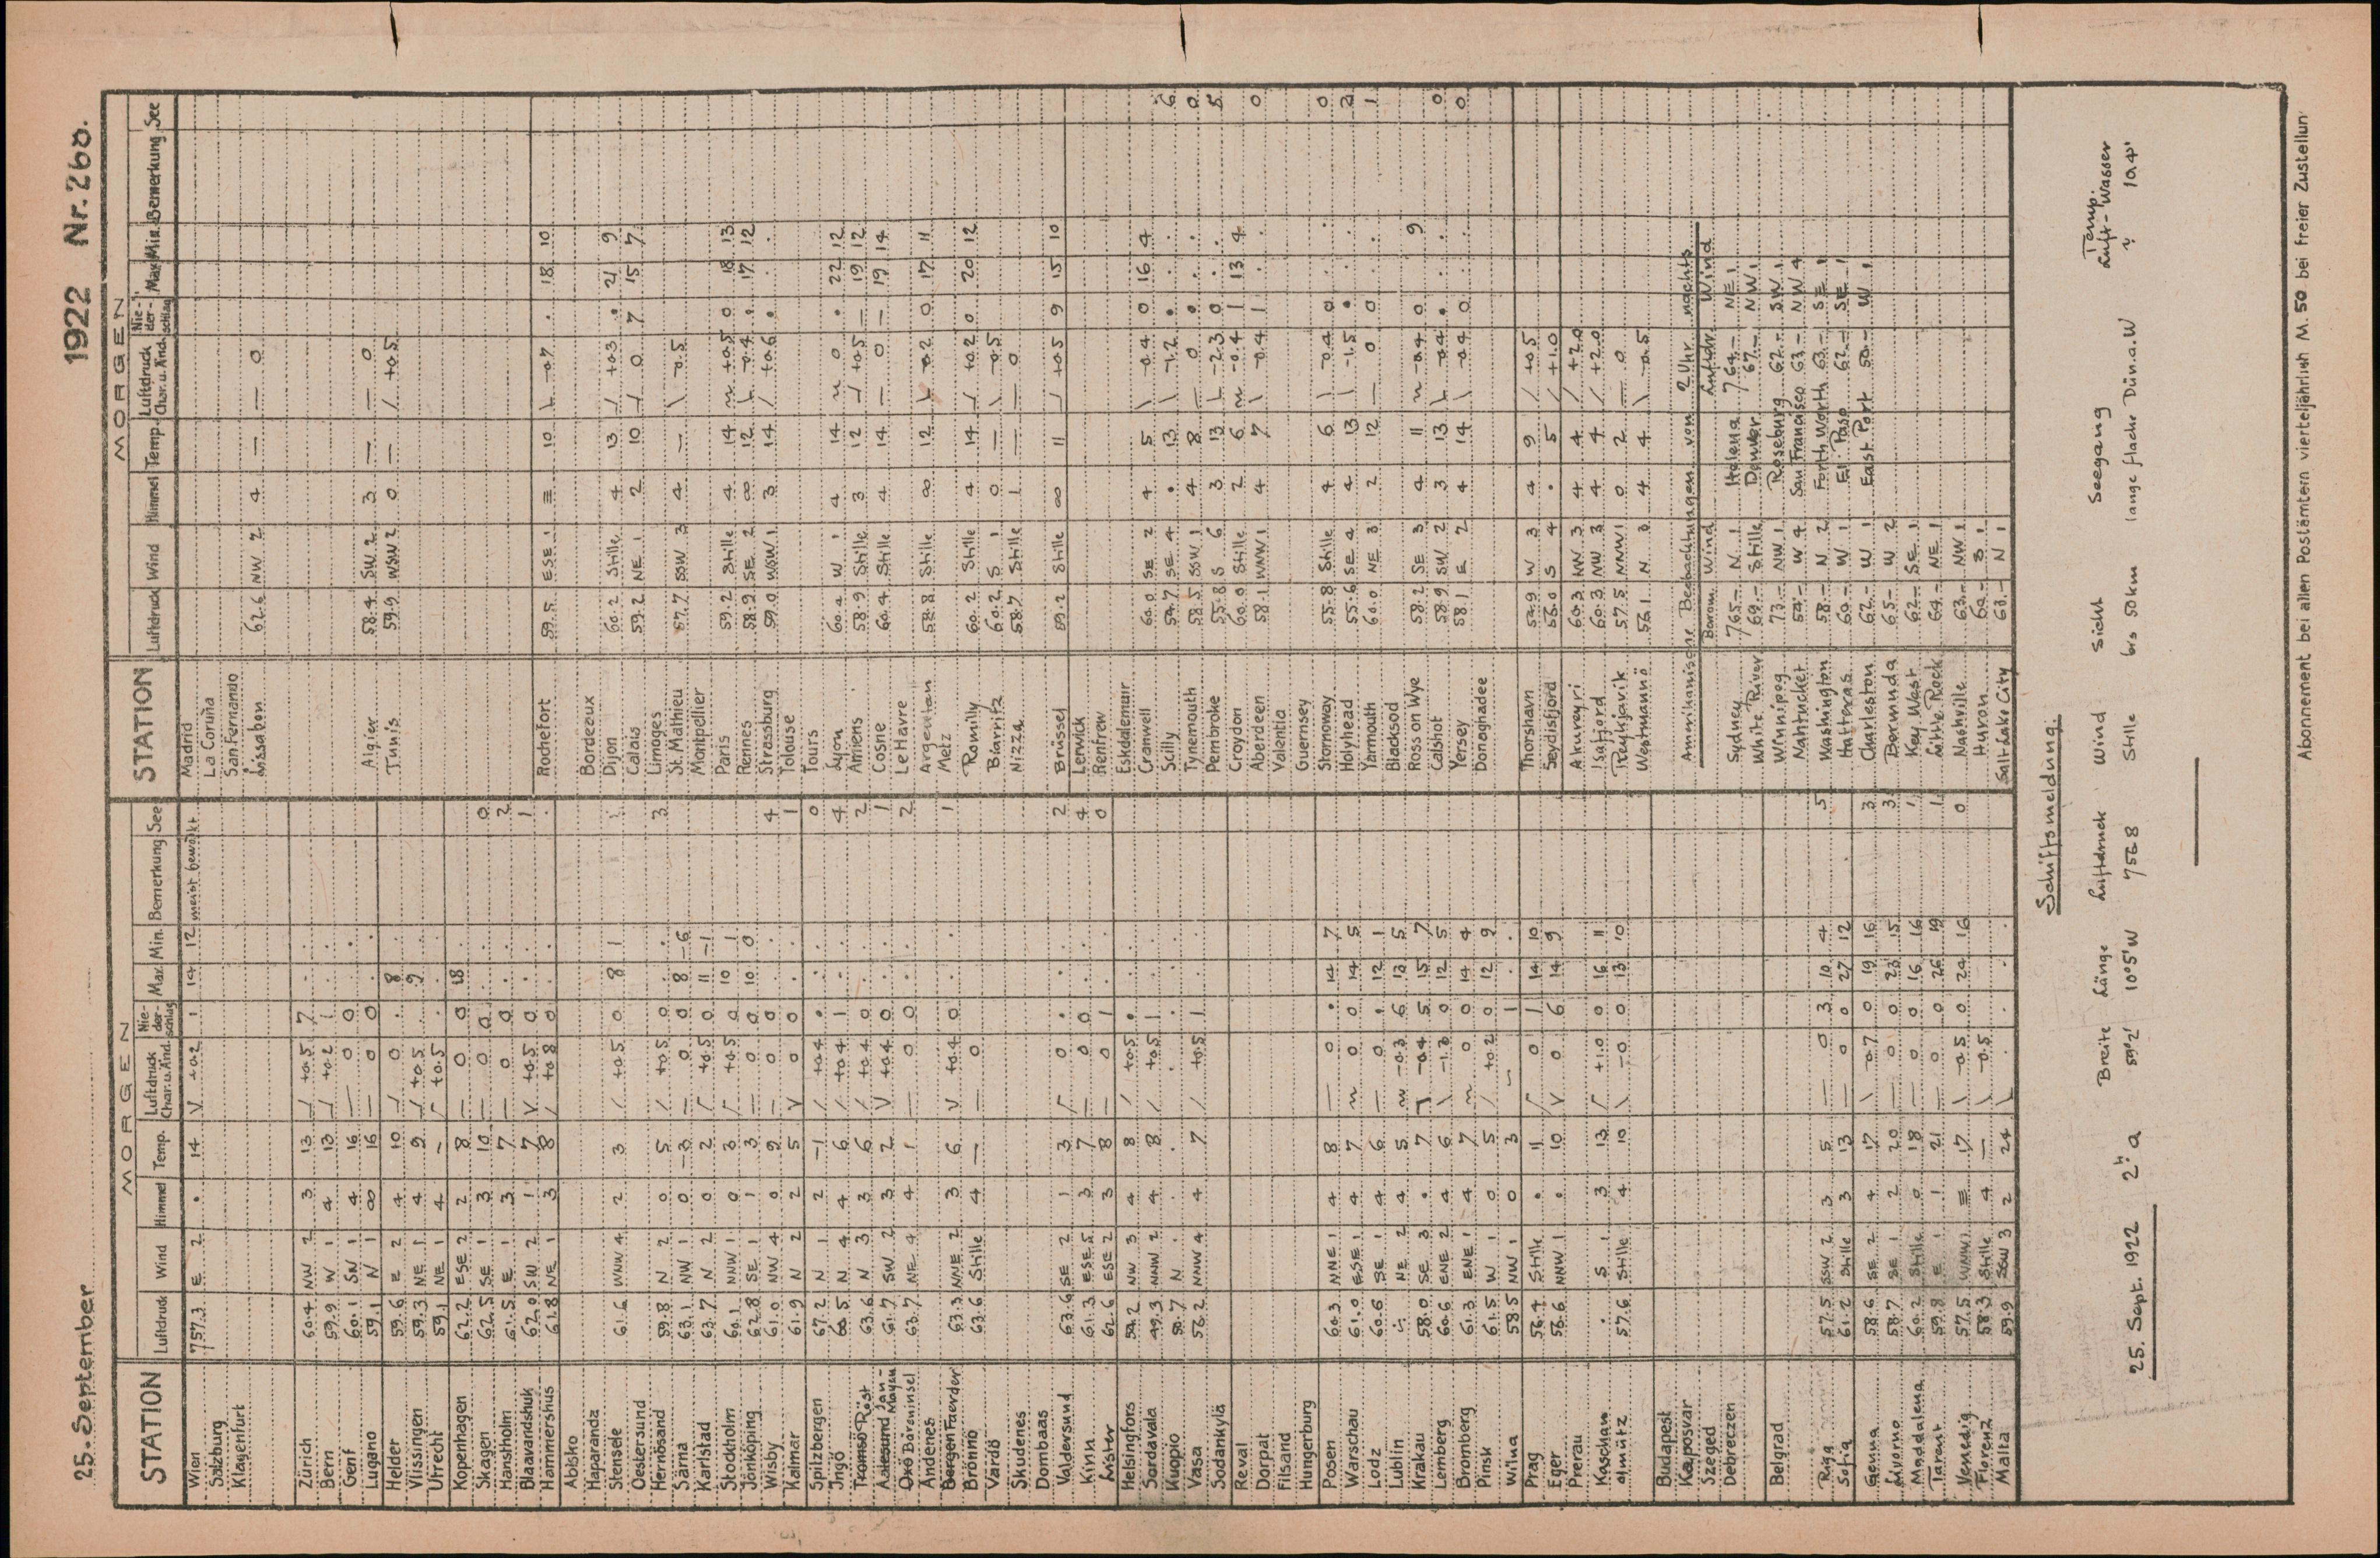 25. September 1922 Nr. 260.
MORGEN
STATION Luftdruck Wind Himmel Temp. Luftdruck Char. u. Änd. Nie-der-schlag Max. Min. Bemerkung See
Wien 757.3 E 2 • 14 V +0.2 1 14 12 meist bewölkt
Salzburg
Klagenfurt
Zürich 60.4 NW 2 3 13 +0.5 7 . .
Bern 59.9 W 1 4 13 +0.2 1 . .
Genf 60.1 SW 1 4 16 — 0 0 . .
Lugano 59.1 N 1 8 16 — 0 0 . .
Helder 59.6 E 2 4 10 0 . 8 .
Vlissingen 59.3 NE 1 4 9 +0.5 . 9 .
Utrecht 59.1 NE 1 4 — +0.5 . .
Kopenhagen 62.2 ESE 2 2 8 — 0 0 18 .
Skagen 62.5 SE 1 3 10 — 0 0 . . 0
Hanstholm 61.5 E 1 3 7 — 0 0 . . 2
Blaavandshuk 62.0 SW 2 1 7 V +0.5 0 . . 1
Hammershus 61.8 NE 1 3 8 / +0.8 0 . . .
Abisko
Haparanda
Stensele 61.6 WNW 4 2 3 / +0.5 0 8 1
Oestersund
Hernösand 59.8 N 2 0 5 / +0.5 0 . . 3
Särna 63.1 NW 1 0 -3 — 0 0 8 -6
Karlstad 63.7 N 2 0 2 +0.5 0 11 -1
Stockholm 60.1 NNW 1 0 3 +0.5 0 10 1
Jönköping 62.8 SE 1 1 3 — 0 0 10 0
Wisby 61.0 NW 4 0 9 — 0 0 . . 4
Kalmar 61.9 N 2 2 5 V 0 0 . . 1
Spitzbergen 67.2 N 1 2 -1 / +0.4 • . . 0
Ingö 60.5 N 4 4 6 / +0.4 1 . . 4
Tromsö Röst 63.6 N 3 3 6 / +0.4 0 . . 2
Aalesund Jan-Mayen 61.7 SW 2 3 2 V +0.4 0 . . 1
Oxö Bäreninsel 63.7 NE 4 4 1 — 0 0 . . 2
Andenes
Bergen Faerder 63.3 NNE 2 3 6 V +0.4 0 . . 1
Brönnö 63.6 Stille 4 — — 0
Vardö
Skudenes
Dombaas
Valdersund 63.6 SE 2 1 3 0 • . . 2
Kinn 61.3 ESE 5 3 7 — 0 0 . . 4
Lister 62.6 ESE 2 3 8 — 0 1 . . 0
Helsingfors 54.2 NW 3 4 8 / +0.5 • . .
Sordavala 49.3 NNW 2 4 8 / +0.5 1 . .
Kuopio 50.7 N . . . . . .
Vasa 56.2 NNW 4 4 7 / +0.5 1 . .
Sodankylä
Reval
Dorpat
Filsand
Hungerburg
Posen 60.3 NNE 1 4 8 — 0 • 14 7
Warschau 61.0 ESE 1 4 7 0 0 14 5
Lodz 60.6 SE 1 4 6 — 0 • 12 1
Lublin NE 2 4 5 -0.3 6 13 5
Krakau 58.0 SE 3 • 7 -0.4 5 15 7
Lemberg 60.6 ENE 2 4 6 \ -1.3 0 12 5
Bromberg 61.3 ENE 1 4 7 0 0 14 4
Pinsk 61.5 W 1 0 5 / +0.2 0 12 9
Wilna 58.5 NW 1 0 3 1 . .
Prag 56.4 Stille • 11 0 1 14 10
Eger 56.6 NNW 1 • 10 V 0 6 14 9
Prerau
Kaschau . S 1 3 13 +1.0 0 16 11
Olmütz 57.6 Stille 4 10 \ -0 0 13 10
Budapest
Kaposvar
Szeged
Debreczen
Belgrad
Riga 57.5 SSW 2 3 5 — 0 3 10 4 5
Sofia 61.2 Stille 3 13 — 0 0 27 12
Genua 58.6 SE 2 4 17 \ -0.7 0 19 16 3
Livorno 58.7 SE 1 2 20 — 0 0 23 15 3
Maddalena 60.2 Stille 0 18 — 0 0 16 16 1
Tarent 59.8 E 1 1 21 — 0 0 26 19 1
Venedig 57.5 WNW 1 ≡ 17 \ -0.5 0 24 16 0
Florenz 58.3 Stille 4 — \ -0.5
Malta 59.9 SSW 3 2 24 \ . . . .
MORGEN
STATION Luftdruck Wind Himmel Temp. Luftdruck Char. u. Änd. Nie-der-schlag Max. Min. Bemerkung See
Madrid
La Coruña
San Fernando
Lissabon 62.6 NW 2 4 — — 0
Algier 58.4 SW 2 3 — — 0
Tunis 59.9 WSW 2 0 — / +0.5
Rochefort 59.5 ESE 1 ≡ 10 \ -0.7 . 18 10
Bordeaux
Dijon 60.2 Stille 4 13 +0.3 • 21 9
Calais 59.2 NE 1 2 10 0 7 15 7
Limoges
St. Mathieu 57.7 SSW 3 4 — \ -0.5
Montpellier
Paris 59.2 Stille 4 14 +0.5 0 18 13
Rennes 58.2 SE 2 8 12 -0.4 • 17 12
Strassburg 59.0 WSW 1 3 14 / +0.6 • . .
Tolouse
Tours
Lyon 60.4 W 1 4 14 0 • 22 12
Amiens 58.9 Stille 3 12 +0.5 — 19 12
Cosne 60.4 Stille 4 14 — 0 — 19 14
Le Havre
Argentan 58.8 Stille 8 12 -0.2 0 17 11
Metz
Romilly 60.2 Stille 4 14 +0.2 0 20 12
Biarritz 60.2 S 1 0 — \ -0.5
Nizza 58.7 Stille 1 — — 0
Brüssel 59.2 Stille 8 11 +0.5 9 15 10
Lerwick
Renfrew
Eskdalemuir
Cranwell 60.0 SE 2 4 5 \ -0.4 0 16 4
Scilly 54.7 SE 4 • 13 \ -1.2 • . . 6
Tynemouth 58.5 SSW 1 4 8 — 0 • . . 0
Pembroke 55.8 S 6 3 13 -2.3 0 . . 5
Croydon 60.0 Stille 2 6 -0.4 1 13 4
Aberdeen 58.1 WNW 1 4 7 \ -0.4 1 . . 0
Valentia
Guernsey
Stornoway 55.8 Stille 4 6 \ -0.4 0 . . 0
Holyhead 55.6 SE 4 4 13 \ -1.5 • . . 2
Yarmouth 60.0 NE 3 2 12 — 0 0 . . 1
Blacksod
Ross on Wye 58.2 SE 3 4 11 -0.4 0 . 9
Calshot 58.9 SW 2 3 13 -0.4 • . . 0
Yersey 58.1 E 2 4 14 \ -0.4 0 . . 0
Doneghadee
Thorshavn 53.9 W 3 4 9 / +0.5
Seydisfjord 56.0 S 4 • 5 / +1.0
Akureyri 60.3 NW 3 4 4 / +2.0
Isafjord 60.3 NW 3 4 4 / +2.0
Reykjavik 57.5 NNW 1 0 2 — 0
Westmannö 56.1 N 3 4 4 \ -0.5
Amerikanische Beobachtungen von 2 Uhr nachts
Barom. Wind Luftdr. Wind
Sydney 765.- N 1 Helena 764.- NE 1
White River 69.- Stille Denver 67.- NW 1
Winnipeg 73.- NW 1 Roseburg 62.- SW 1
Nantucket 54.- W 4 San Francisco 63- NW 4
Washington 58.- N 2 Forth Worth 63.- SE 1
Hatteras 60- W 1 El Paso 62.- SE 1
Charleston 62- W 1 East Port 50.- W 1
Bermuda 65- W 2
Key West 62- SE 1
Little Rock 64- NE 1
Nashville 63- NW 1
Huron 60- S 1
Salt Lake City 63.- N 1
Schiffsmeldung:
Breite Länge Luftdruck Wind Sicht Seegang Temp. Luft- Wasser
25. Sept. 1922 2ʰ a 59°2' 10°5'W 756.8 Stille bis 50km lange flache Dün. a. W ? 10.4°
Abonnement bei allen Postämtern vierteljährlich M. 50 bei freier Zustellun